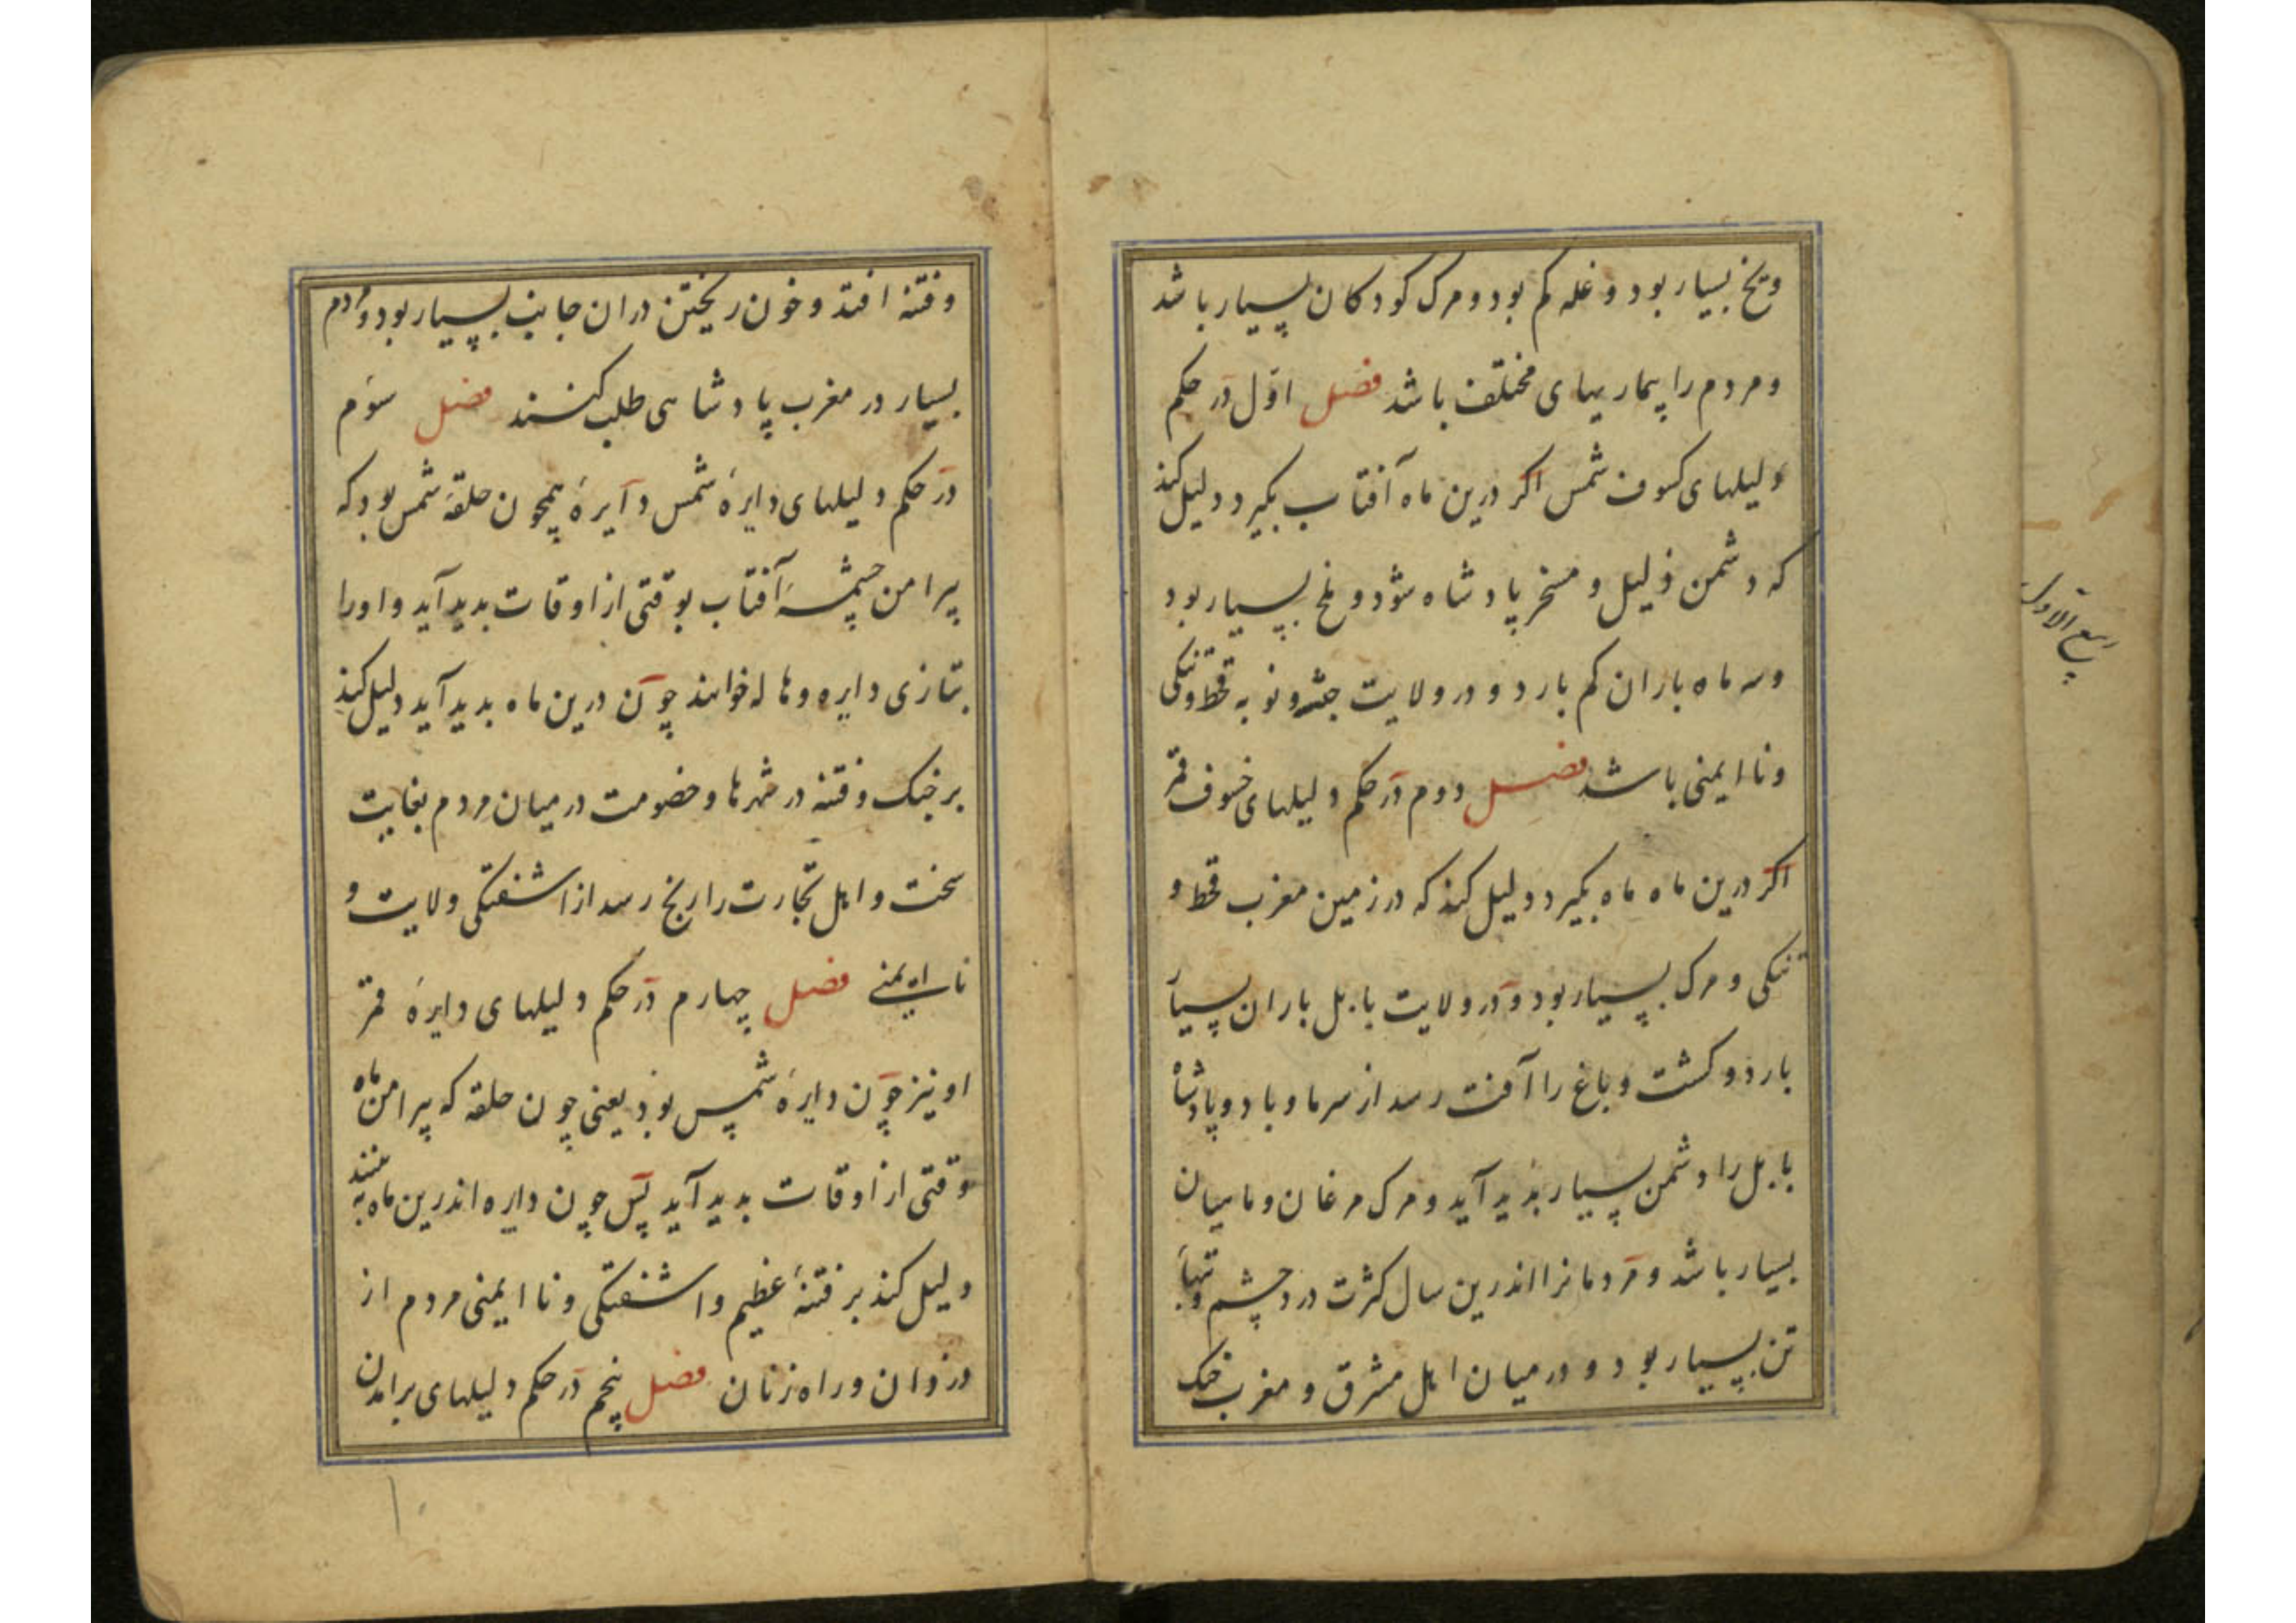 ویخ بسیار بود و غله کم بود و مرک کودکان بسیار باشد
و مردم را بیماریهای مختلف باشد فصل اوّل در حکم
دلیلهای کسوف شمس اکر درین ماه آفتاب بکیرد دلیل کند
که دشمن ذلیل و مسخر پادشاه شود و ملخ بسیار بود
و سه ماه باران کم بارد و در ولایت حبشه و نوبه قحط و تنکی
و نا ایمنی باشد فصل دوم در حکم دلیلهای خسوف قمر
اکر درین ماه ماه بکیرد دلیل کند که در زمین مغرب قحط و
تنکی و مرک بسیار بود و در ولایت بابل باران بسیار
بارد و کشت و باغ را آفت رسد از سرما و باد و پادشاه
بابل را دشمن بسیار پدید آید و مرک مرغان و ماهیان
بسیار باشد و مردمانرا اندرین سال کثرت درد چشم و تبها
تن بسیار بود و در میان اهل مشرق و مغرب جنک
ربیع الاول
و فتنه افتد و خون ریختن دران جانب بسیار بود و مردم
بسیار در مغرب پادشاهی طلب کنند فصل سوم
در حکم دلیلهای دایرهٔ شمس دایرهٔ همچون حلقهٔ شمس بود که
پیرامن چشمهٔ آفتاب بوقتی از اوقات بدید آید و اورا
بتازی دایره و هاله خوانند چون درین ماه بدید آید دلیل کند
بر جنک و فتنه در شهرها و خصومت در میان مردم بغایت
سخت و اهل تجارت را رنج رسد از اشفتکی ولایت و
نا ایمنی فصل چهارم در حکم دلیلهای دایرهٔ قمر
او نیز چون دایرهٔ شمس بود یعنی چون حلقه که پیرامن ماه
وقتی از اوقات بدید آید پس چون دایره اندرین ماه به بینند
دلیل کند بر فتنهٔ عظیم و اشفتکی و نا ایمنی مردم از
دزدان و راه زنان فصل پنجم در حکم دلیلهای برامدن